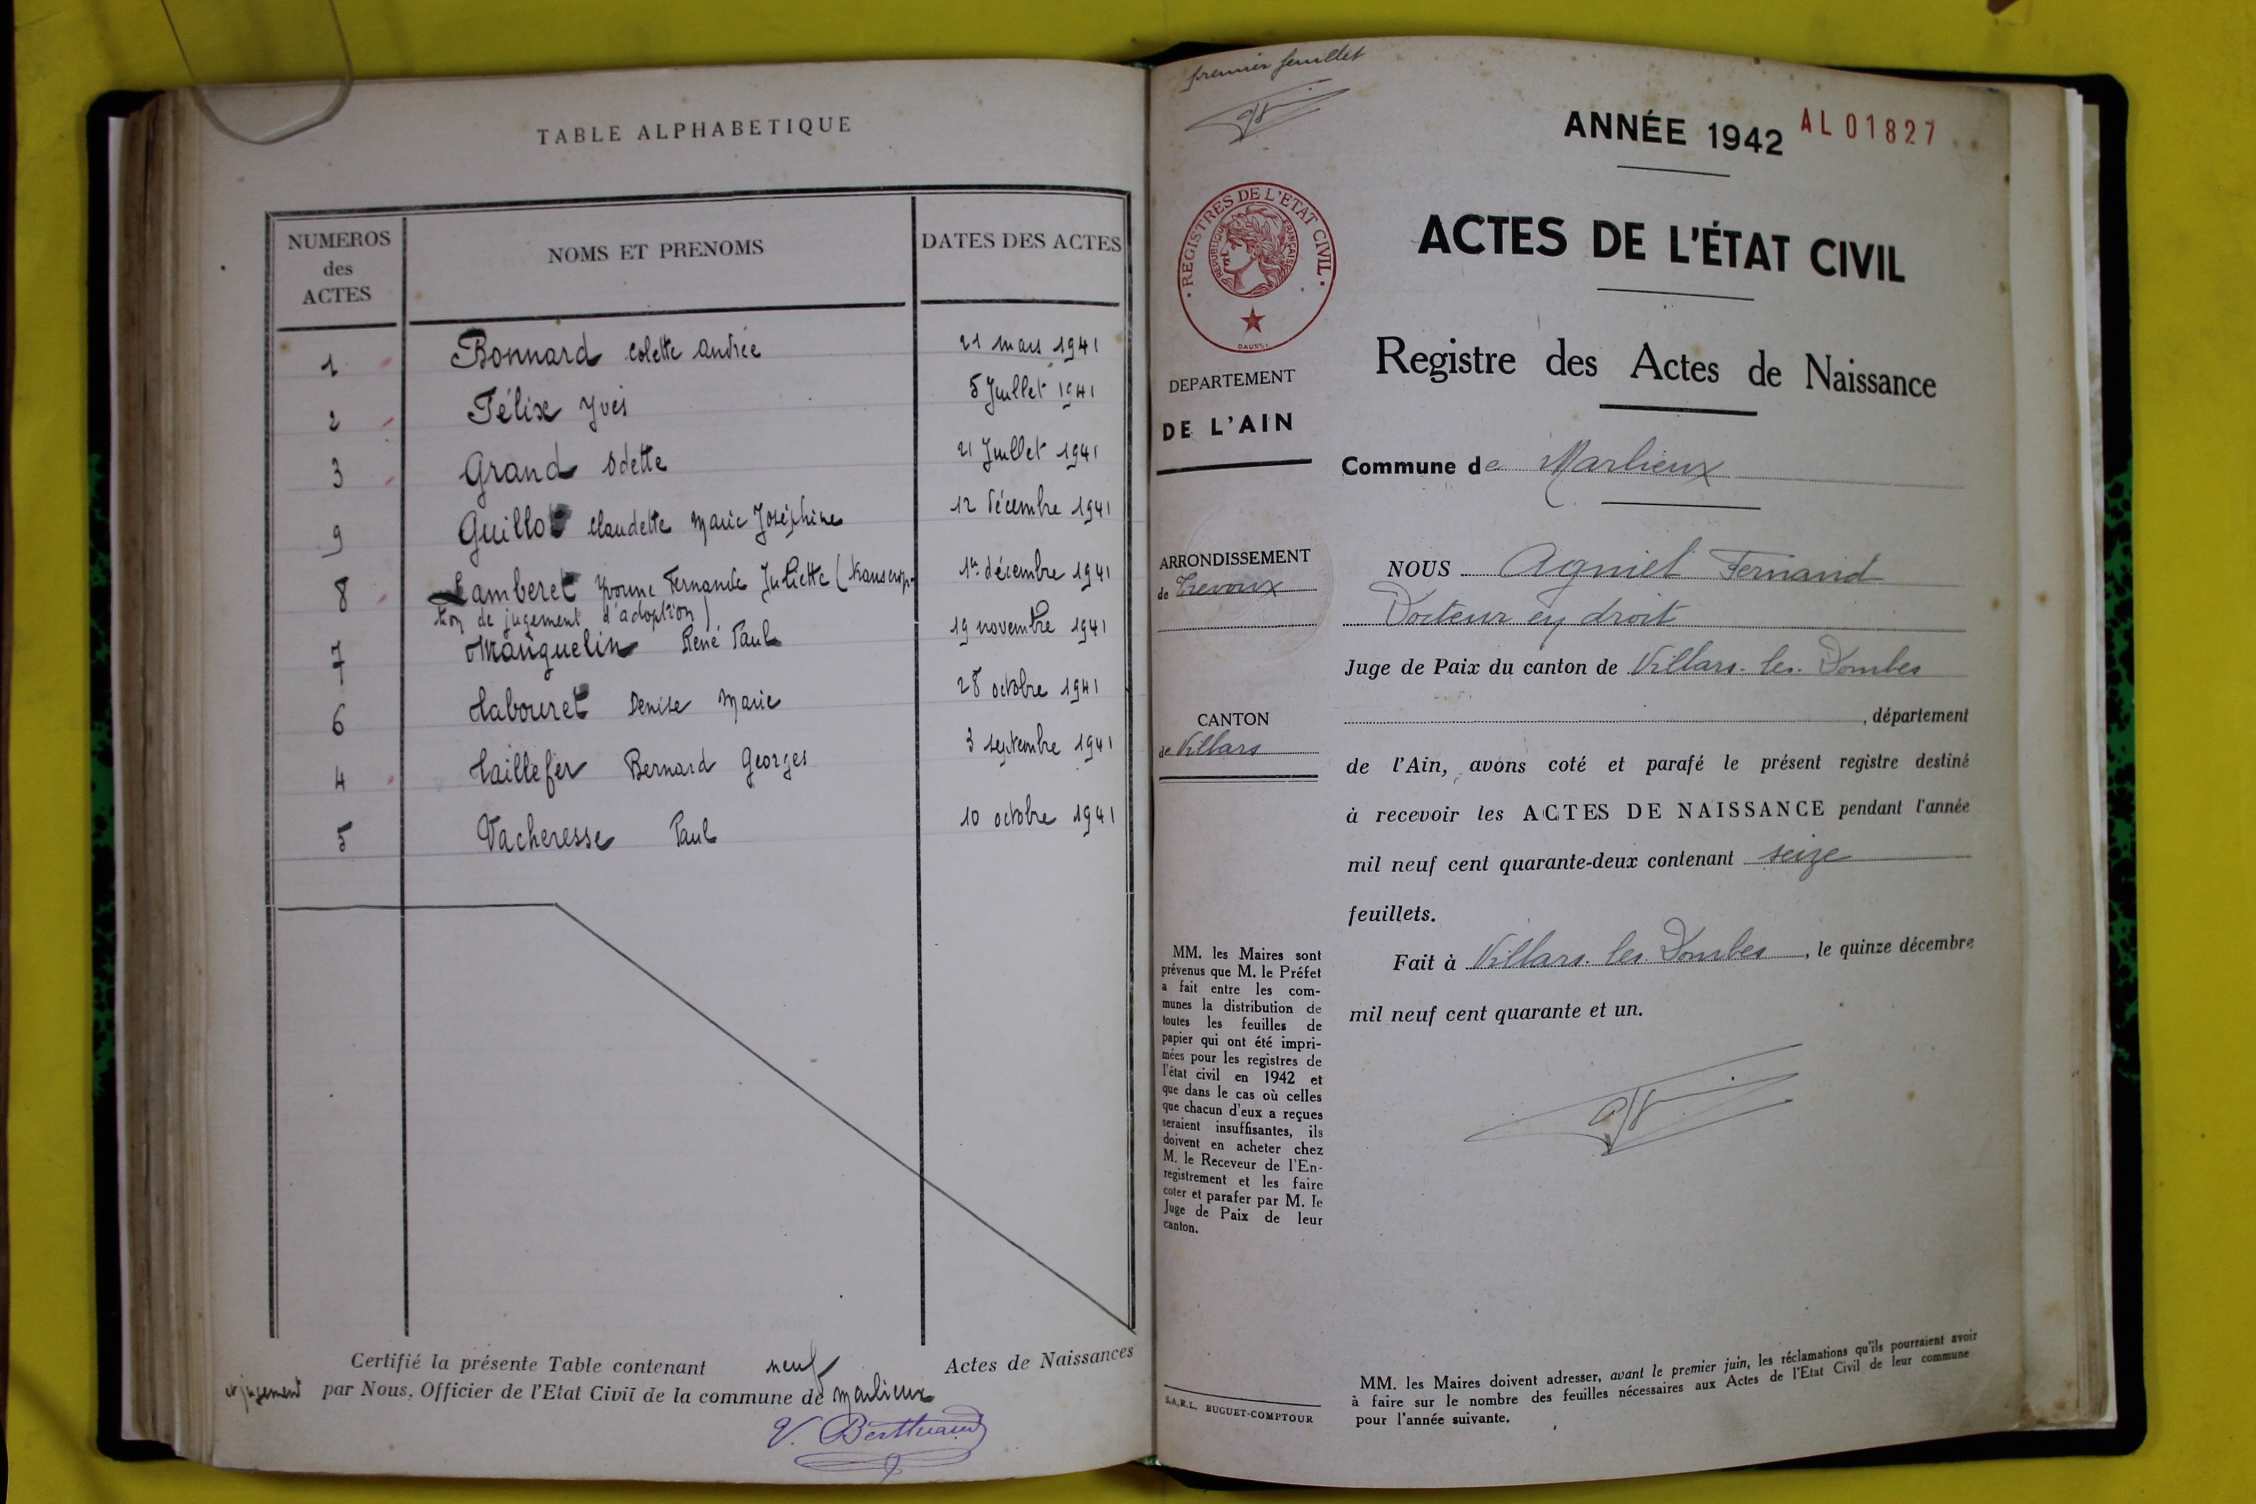 TABLE ALPHABETIQUE
NUMEROS
des
ACTES
NOMS ET PRENOMS
DATES DES ACTES
1 Bonnard Colette Andrée 21 mars 1941
2 Félix Yves 5 Juillet 1941
3 Grand Odette 21 Juillet 1941
9 Guillot Claudette Marie Joséphine 12 Décembre 1941
8 Lamberet Yvonne Fernande Juliette (transcrip- 1er décembre 1941
tion de jugement d'adoption)
7 Manguelin René Paul 19 novembre 1941
6 Tabouret Denise Marie 28 octobre 1941
4 Taillefer Bernard Georges 3 septembre 1941
5 Vacheresse Paul 10 octobre 1941
Certifié la présente Table contenant neuf Actes de Naissances
et jugement par Nous, Officier de l'Etat Civil de la commune de Marlieux
premier feuillet
ANNÉE 1942 AL 01827
REGISTRES DE L'ETAT CIVIL
REPUBLIQUE FRANÇAISE
ACTES DE L'ÉTAT CIVIL
Registre des Actes de Naissance
DEPARTEMENT
DE L'AIN
Commune de Marlieux
ARRONDISSEMENT
de Trevoux
CANTON
de Villars
NOUS Agniel Fernand
Docteur en droit
Juge de Paix du canton de Villars-les-Dombes
, département
de l'Ain, avons coté et parafé le présent registre destiné
à recevoir les ACTES DE NAISSANCE pendant l'année
mil neuf cent quarante-deux contenant seize
feuillets.
Fait à Villars-les-Dombes, le quinze décembre
mil neuf cent quarante et un.
MM. les Maires sont
prévenus que M. le Préfet
a fait entre les com-
munes la distribution de
toutes les feuilles de
papier qui ont été impri-
mées pour les registres de
l'état civil en 1942 et
que dans le cas où celles
que chacun d'eux a reçues
seraient insuffisantes, ils
doivent en acheter chez
M. le Receveur de l'En-
registrement et les faire
coter et parafer par M. le
Juge de Paix de leur
canton.
S.A.R.L. BUGUET-COMPTOUR
MM. les Maires doivent adresser, avant le premier juin, les réclamations qu'ils pourraient avoir
à faire sur le nombre des feuilles nécessaires aux Actes de l'Etat Civil de leur commune
pour l'année suivante.